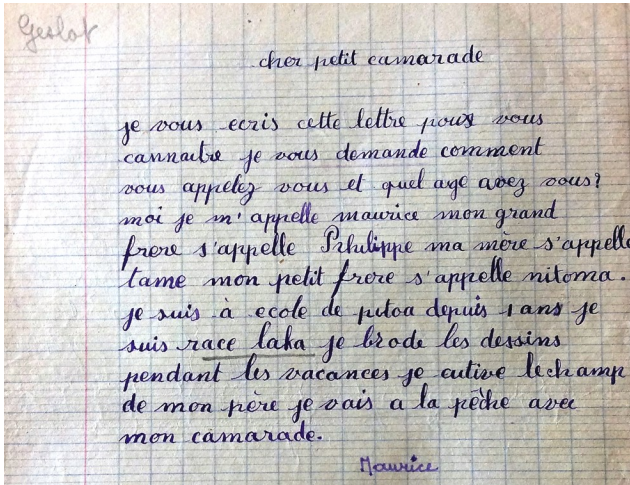 Geslot
cher petit camarade
je vous ecris cette lettre pour vous
cannaitre je vous demande comment
vous appelez vous et quel age avez vous?
moi je m'appelle maurice mon grand
frere s'appelle Philippe ma mère s'appelle
tame mon petit frere s'appelle nitoma.
je suis à ecole de pitoa depuis 1 ans je
suis race laka je brode les dessins
pendant les vacances je cutive le champ
de mon père je vais a la pêche avec
mon camarade.
Maurice